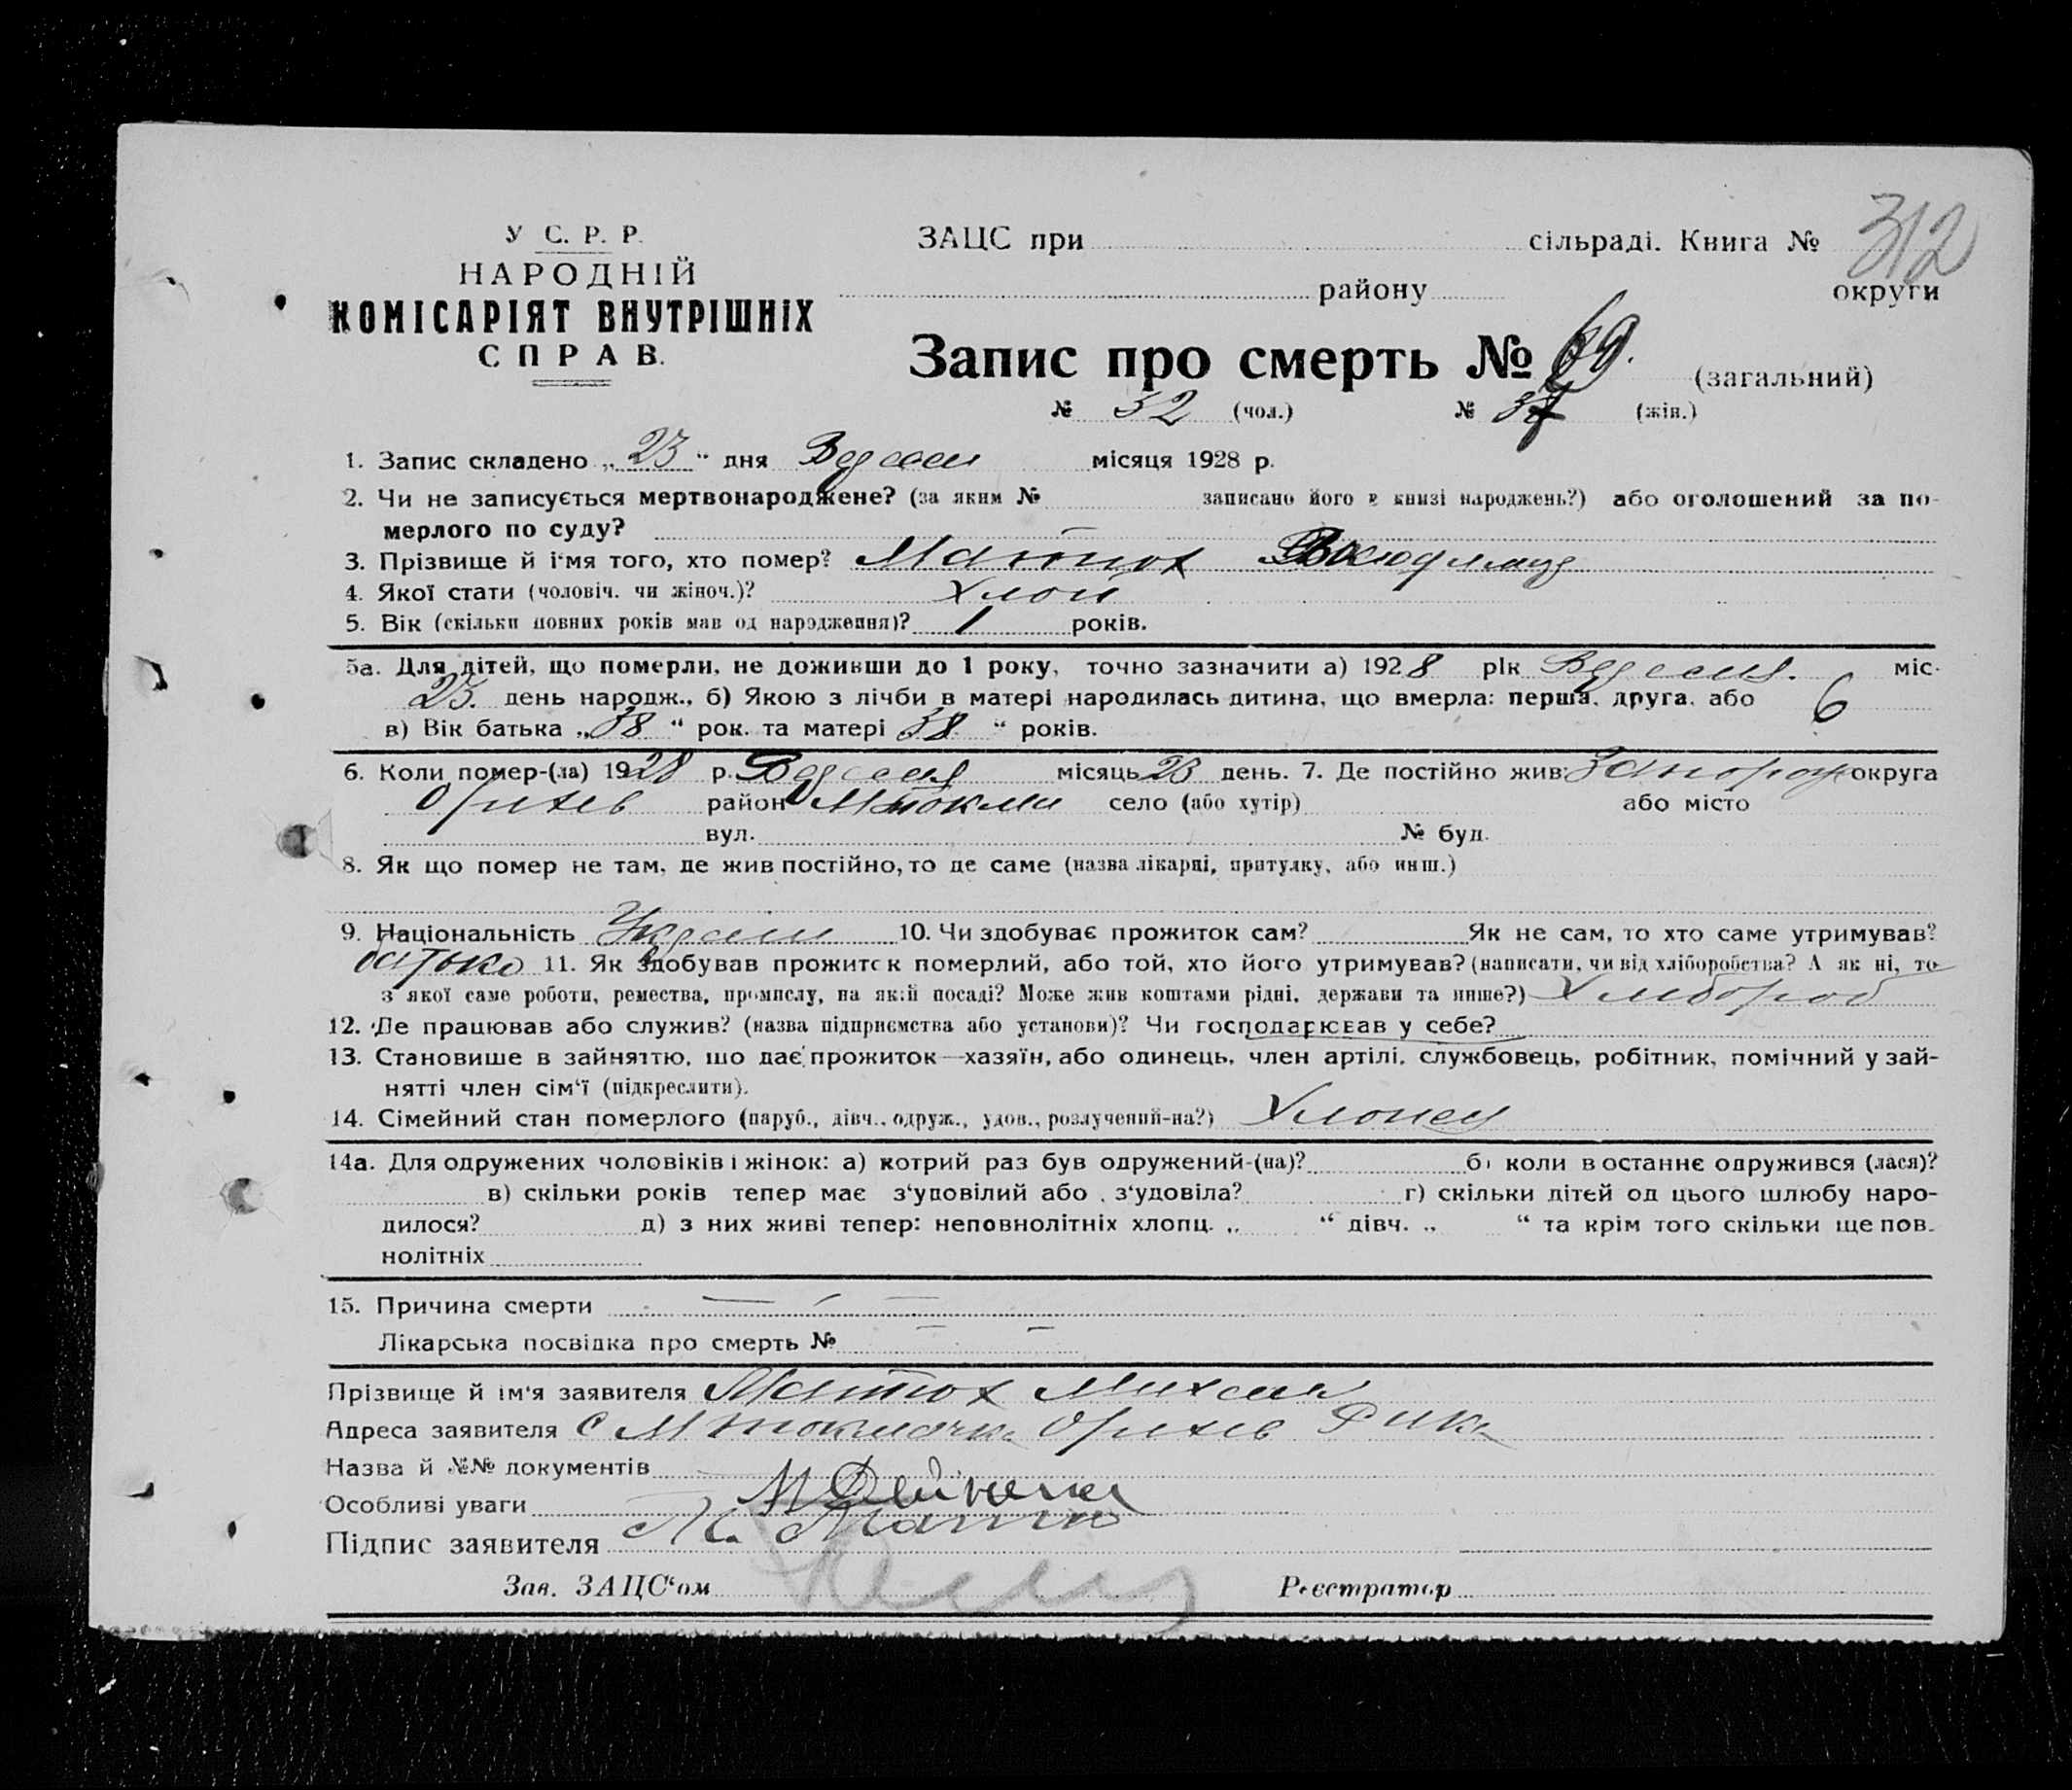 312
У С. Р. Р.
НАРОДНІЙ
КОМІСАРІЯТ ВНУТРІШНІХ
СПРАВ.
ЗАЦС при сільраді. Книга №
району округи
Запис про смерть № 69. (загальний)
№ 32 (чол.) № 37 (жін.)
1. Запис складено „ 23 “ дня місяця 1928 р.
2. Чи не записується мертвонароджене? (за яким № записано його в книзі народжень?) або оголошений за по-
мерлого по суду?
3. Прізвище й і'мя того, хто помер? Матюх
4. Якої стати (чоловіч. чи жіноч.)? Хлоп
5. Вік (скільки повних років мав од народження)? 1 років.
5а. Для дітей, що померли, не доживши до 1 року, точно зазначити а) 1928 рік міс.
23. день народж., б) Якою з лічби в матері народилась дитина, що вмерла: перша, друга, або 6
в) Вік батька „ 38 “ рок. та матері 38 “ років.
6. Коли помер-(ла) 1928 р. місяць 23 день. 7. Де постійно жив: Запорож округа
Оріхів район М Токмач село (або хутір) або місто
вул. № буд.
8. Як що помер не там, де жив постійно, то де саме (назва лікарні, притулку, або инш.)
9. Національність Украін 10. Чи здобуває прожиток сам? Як не сам, то хто саме утримував?
батько 11. Як здобував прожиток померлий, або той, хто його утримував? (написати, чи від хліборобства? А як ні, то
з якої саме роботи, ремества, промислу, на якій посаді? Може жив коштами рідні, держави та инше?) Хлібороб
12. Де працював або служив? (назва підприємства або установи)? Чи господарював у себе?
13. Становище в зайняттю, що дає прожиток—хазяїн, або одинець, член артілі, службовець, робітник, помічний у зай-
нятті член сім'ї (підкреслити).
14. Сімейний стан померлого (паруб., дівч., одруж., удов., розлучений-на?) Хлопец
14а. Для одружених чоловіків і жінок: а) котрий раз був одружений-(на)? б) коли в останнє одружився (лася)?
в) скільки років тепер має з'удовілий або з'удовіла? г) скільки дітей од цього шлюбу наро-
дилося? д) з них живі тепер: неповнолітніх хлопц. „ “ дівч. „ “ та крім того скільки ще пов.
нолітніх
15. Причина смерти — — —
Лікарська посвідка про смерть № — —
Прізвище й ім'я заявителя Матюх Михаил
Адреса заявителя с М Токмачка Оріхів Рика
Назва й №№ документів
Особливі уваги
Підпис заявителя М. Матюх
Зав. ЗАЦС'ом Реєстратор